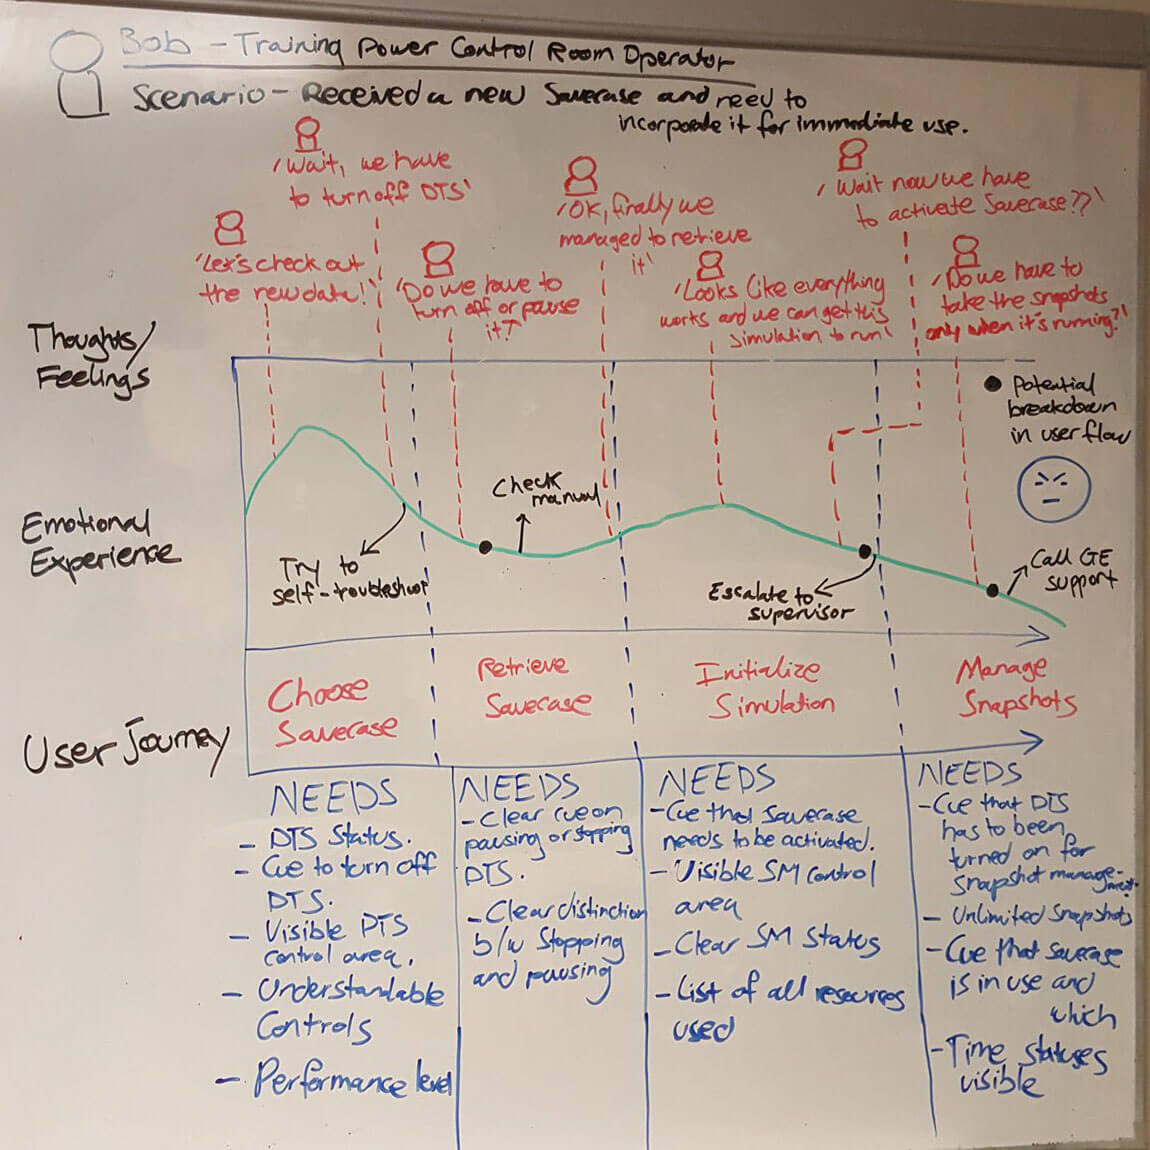 Bob - Training Power Control Room Operator
Scenario - Received a new Savecase and need to
incorporate it for immediate use.
'Wait, we have
to turn off DTS'
'Let's check out
the new data!'
'Do we have to
turn off or pause
it?'
'OK, finally we
managed to retrieve
it'
'Looks like everything
works and we can get this
simulation to run'
'Wait now we have
to activate Savecase??'
'Do we have to
take the snapshots
only when it's running?'
Thoughts/
Feelings
Potential
breakdown
in user flow
Emotional
Experience
Try to
self-troubleshoot
Check
manual
Escalate to
supervisor
Call GE
support
User Journey
Choose
Savecase
Retrieve
Savecase
Initialize
Simulation
Manage
Snapshots
NEEDS
- DTS Status.
- Cue to turn off
DTS.
- Visible DTS
control area.
- Understandable
Controls
- Performance level
NEEDS
- Clear cue on
pausing or stopping
DTS.
- Clear distinction
b/w Stopping
and pausing
NEEDS
- Cue that Savecase
needs to be activated.
- Visible SM control
area
- Clear SM Status
- List of all resources
used
NEEDS
- Cue that DTS
has to been
turned on for
snapshot manage-
ment.
- Unlimited Snapshots
- Cue that savecase
is in use and
which
- Time statuses
visible